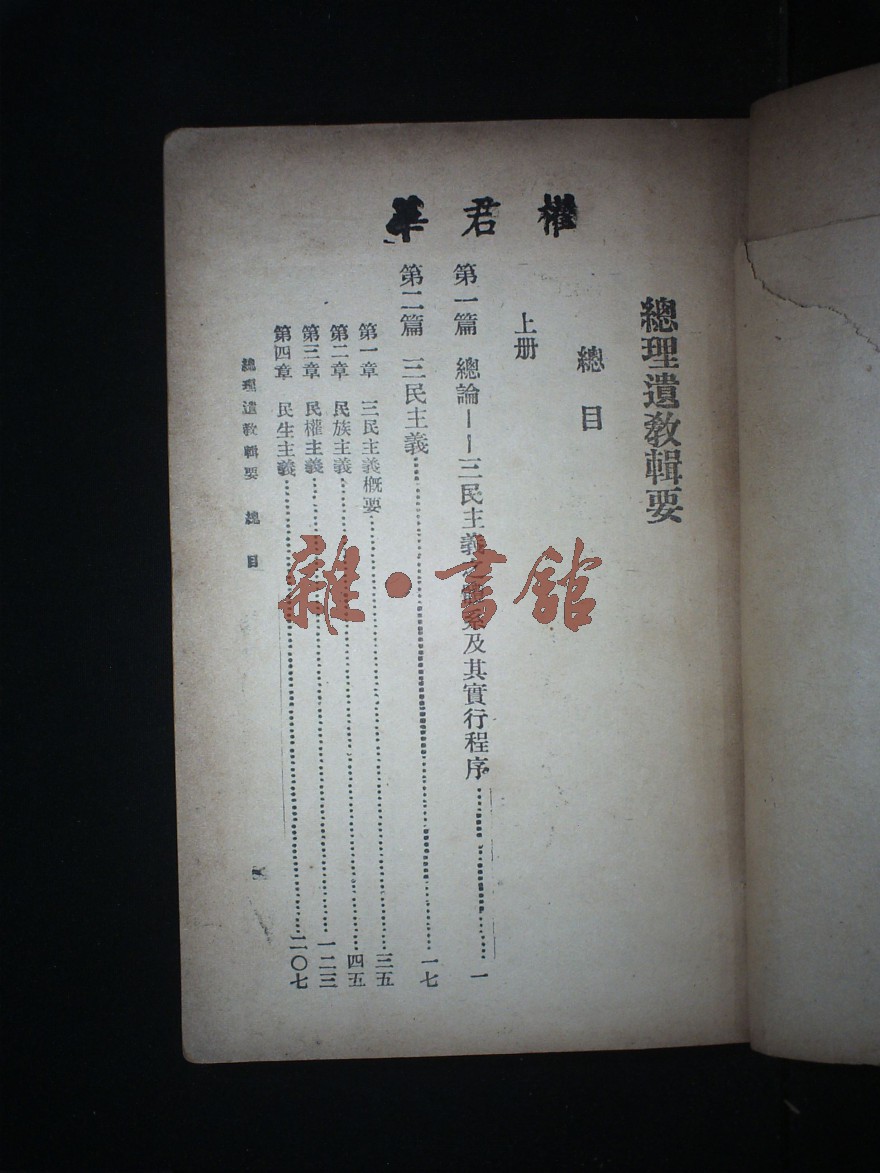 權君華
總理遺教輯要
總目
上册
第一篇 總論——三民主義之體系及其實行程序……一
第二篇 三民主義……一七
第一章 三民主義概要……三五
第二章 民族主義……四五
第三章 民權主義……一二三
第四章 民生主義……二〇七
總理遺教輯要 總目
雜·書館